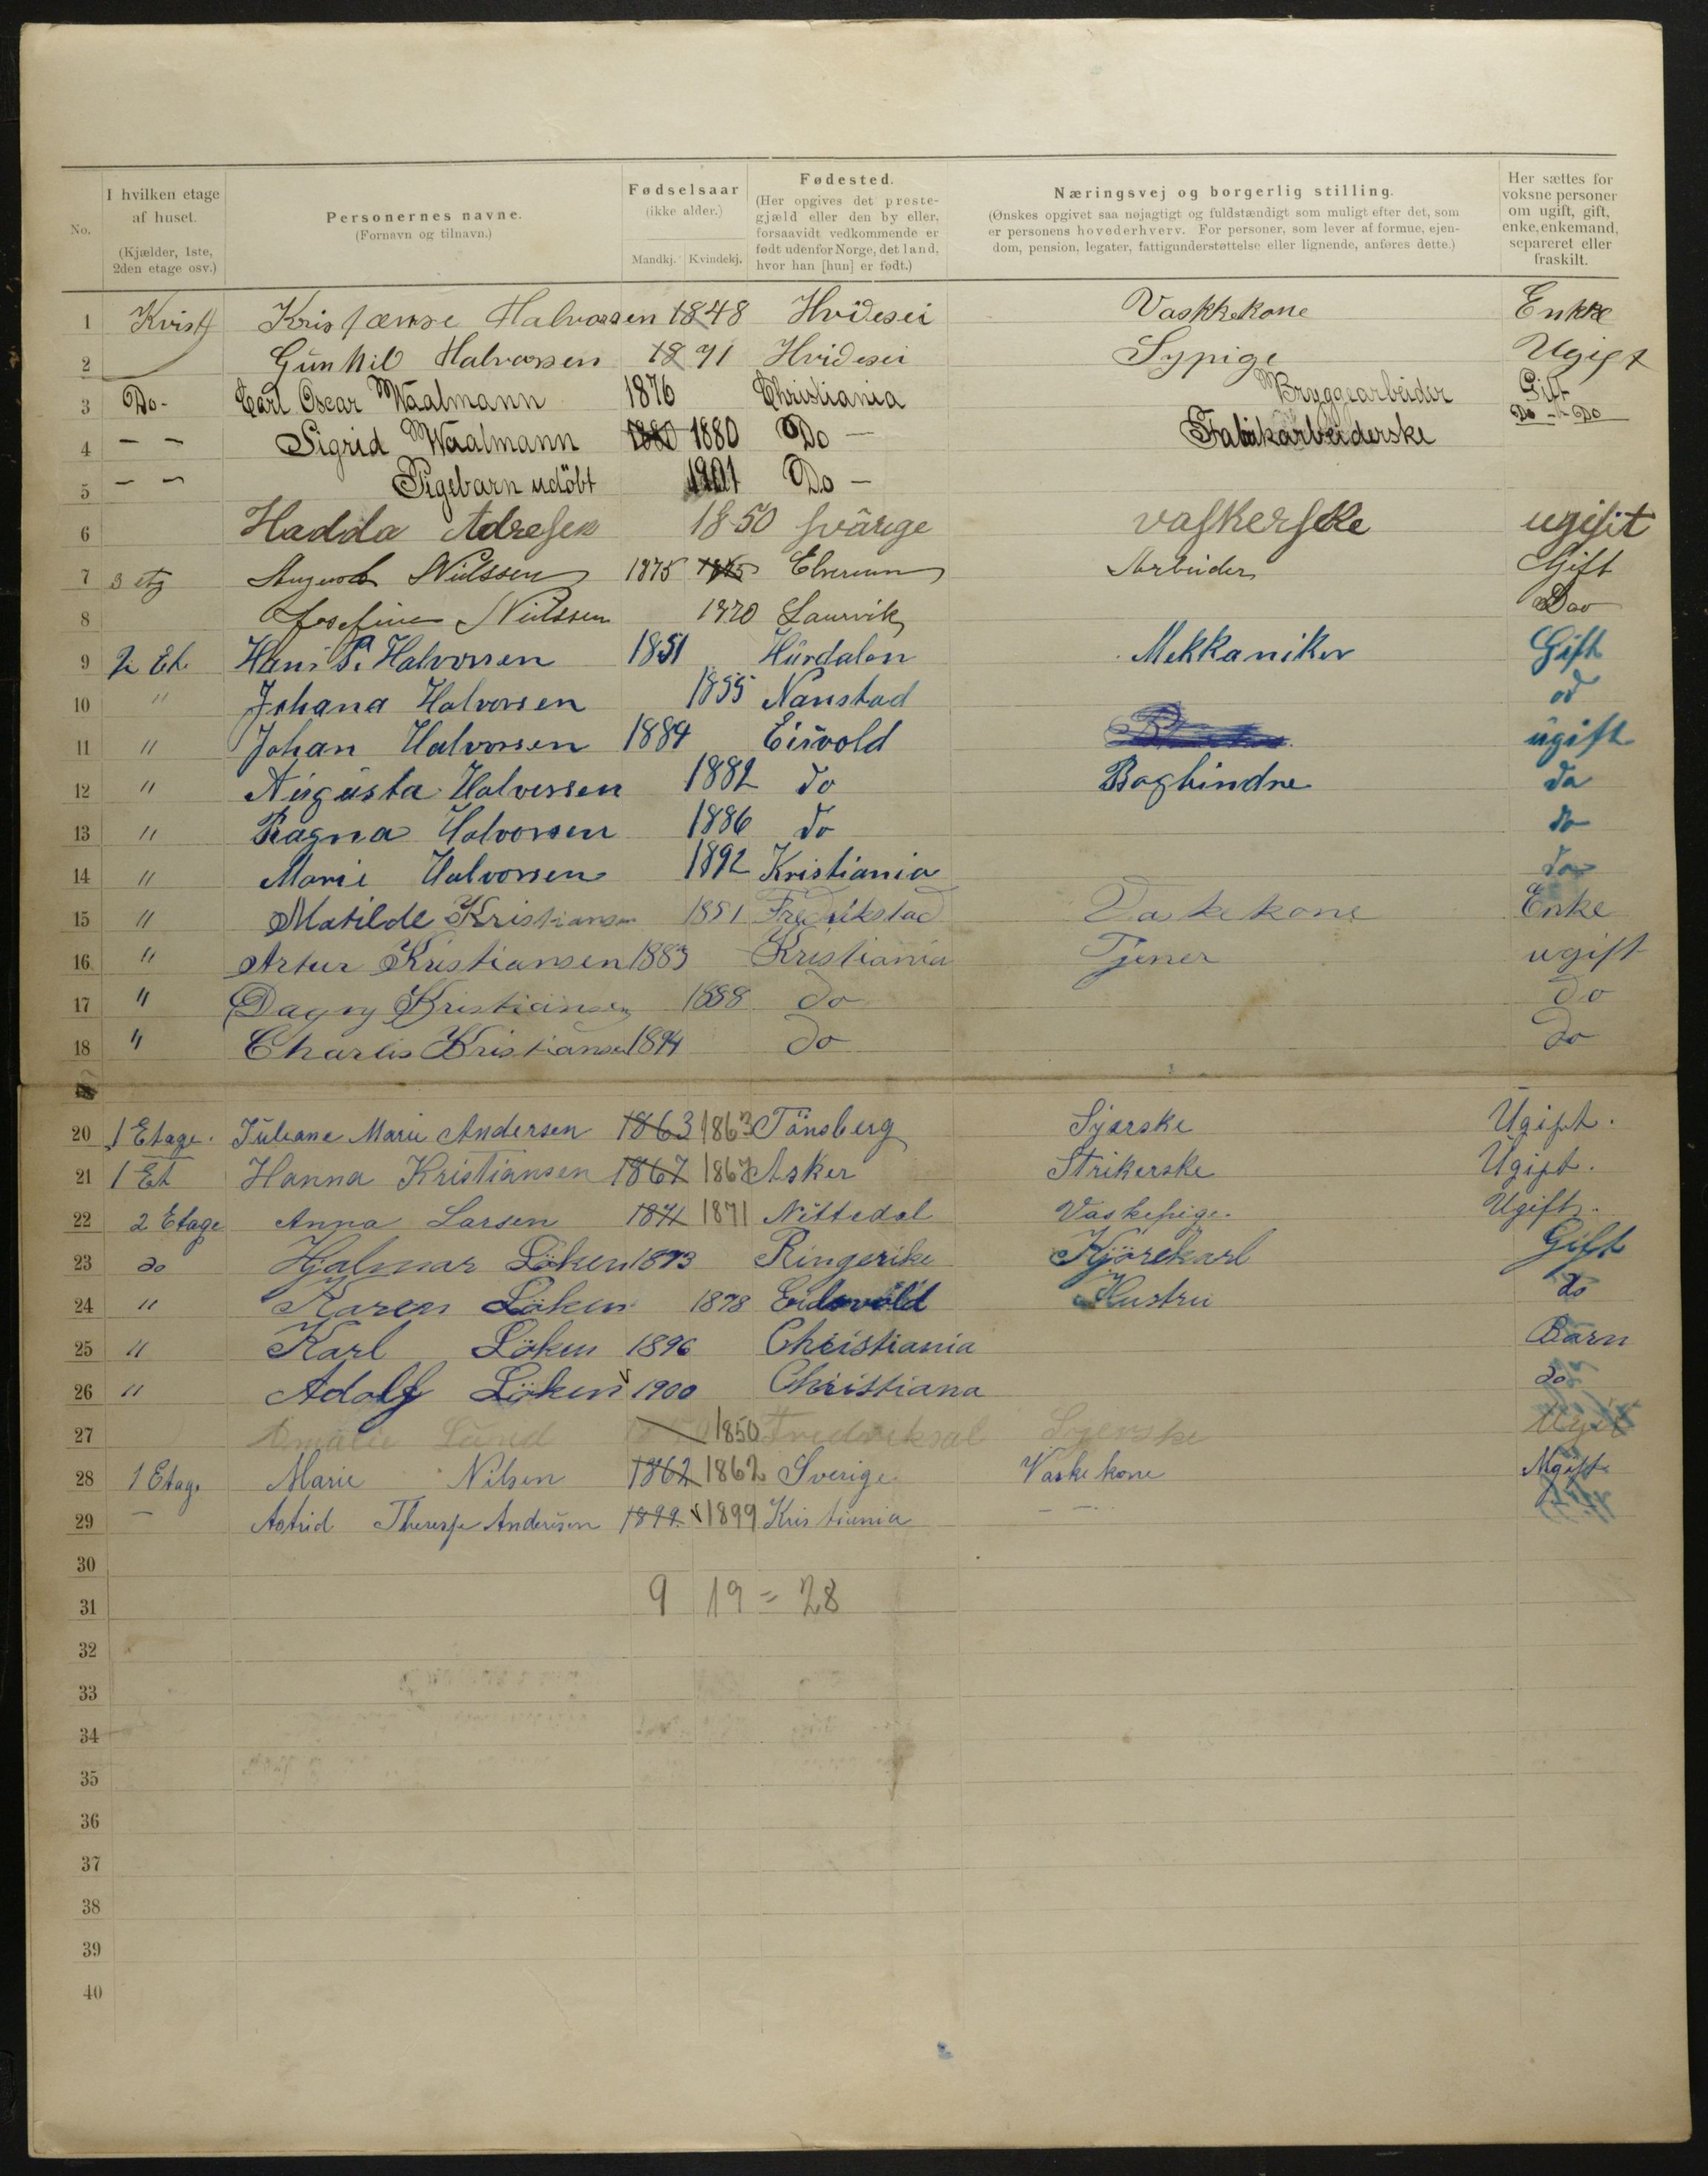 No.
I hvilken etage af huset.
(Kjælder, 1ste, 2den etage osv.)
Personernes navne.
(Fornavn og tilnavn.)
Fødselsaar
(ikke alder.)
Mandkj. Kvindekj.
Fødested.
(Her opgives det prestegjæld eller den by eller, forsaavidt vedkommende er født udenfor Norge, det land, hvor han [hun] er født.)
Næringsvej og borgerlig stilling.
(Ønskes opgivet saa nøjagtigt og fuldstændigt som muligt efter det, som er personens hovederhverv. For personer, som lever af formue, ejendom, pension, legater, fattigunderstøttelse eller lignende, anføres dette.)
Her sættes for voksne personer om ugift, gift, enke, enkemand, separeret eller fraskilt.
1 Kvist Halvorsen 1848 Hvidesei Vaskkekone Enkke
2 Gunhil Halvorsen 18 91 Hvidesei Sypige Ugift
3 Do- Carl Oscar Waalmann 1876 Christiania Bryggearbeider Gift
4 — — Sigrid Waalmann 1880 1880 Do — Fabikarbeiderske Do - Do
5 — — Pigebarn udöbt 1901 Do —
6 Hadda Adresen 1850 svärige vaskerske ugifit
7 3 etg Nielssen 1875 1875 Elverum Arbeider Gift
8 Josefine Nielssen 1870 Laurvik Do
9 2 Et. Hans P. Halvorsen 1851 Hürdalen Mekkaniker Gift
10 " Johana Halvorsen 1855 Nanstad do
11 " Johan Halvorsen 1884 Eisvold ügift
12 " Augusta Halvorsen 1882 do Bogbindne do
13 " Ragna Halvorsen 1886 do do
14 " Marie Halvorsen 1892 Kristiania do
15 " Matilde Kristiansen 1851 Fredrikstad Vaskekone Enke
16 " Artur Kristiansen 1883 Kristiania Tjener ugift
17 " Dagny Kristiansen 1888 do do
18 " Charlis Kristiansen 1894 do do
20 1 Etage. Juliane Marie Andersen 1863 1863 Tönsberg Syerske Ugift.
21 1 Et Hanna Kristiansen 1867 1867 Asker Strikerske Ugift.
22 2 Etage Anna Larsen 1871 1871 Nittedal Vaskepige. Ugift.
23 do Hjalmar Löken 1873 Ringerike Kjörekarl Gift
24 " Karen Löken 1878 Eidsvold Hustru do
25 " Karl Löken 1896 Christiania Barn
26 " Adolf Löken 1900 Christiana do
27 Amalie Lund 1850 Syerske Ugift
28 1 Etage Marie Nilsen 1862 1862 Sverige Vaskekone Ugift
29 — Astrid Andersen 1899 1899 Kristiania — —
30
31 9 19 = 28
32
33
34
35
36
37
38
39
40